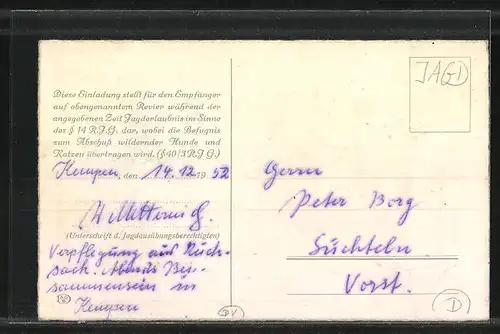 Diese Einladung stellt für den Empfänger
auf obengenanntem Revier während der
angegebenen Zeit Jagderlaubnis im Sinne
des § 14 R.J.G. dar, wobei die Befugnis
zum Abschuß wildernder Hunde und
Katzen übertragen wird. (§ 40/3 R.J.G.)
Kempen, den 14.12.1952
(Unterschrift d. Jagdausübungsberechtigten)
Verpflegung aus Ruck-
sack. Abends Bei-
sammensein in
Kempen
JAGD
Herrn
Peter Borg
Süchteln
Vorst.
D